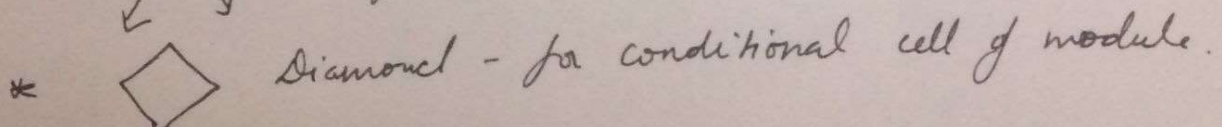 * Diamond - for conditional call of module.